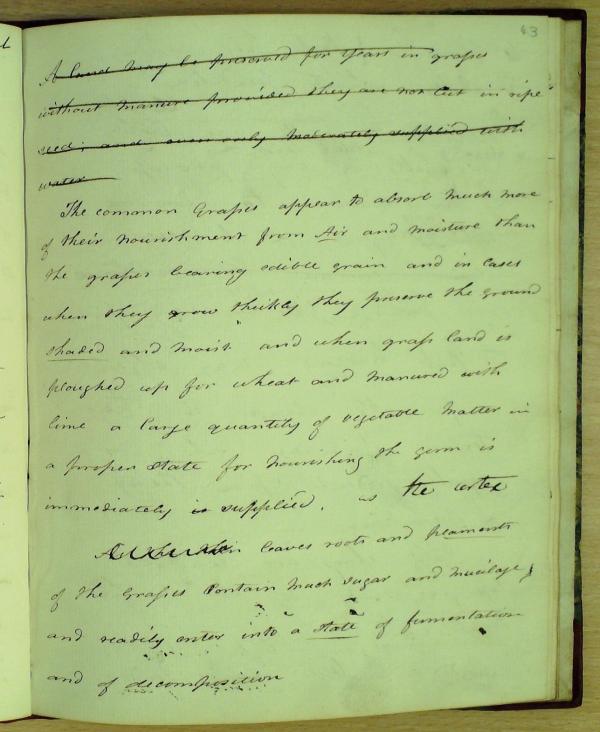 63
A land may be preserved for years in grasses
without manure provided they are not cut in ripe
seed; and even only moderately supplied with
water
The common Grasses appear to absorb much more
of their nourishment from Air and moisture than
the grasses bearing edible grain and in cases
when they grow thickly they preserve the ground
shaded and moist and when grass land is
ploughed up for wheat and manured with
lime a large quantity of vegetable matter in
a proper state for nourishing the germ is
immediately is supplied. as the
leaves roots and
of the Grasses contain much sugar and mucilage,
and readily enter into a state of fermentation
and of decomposition